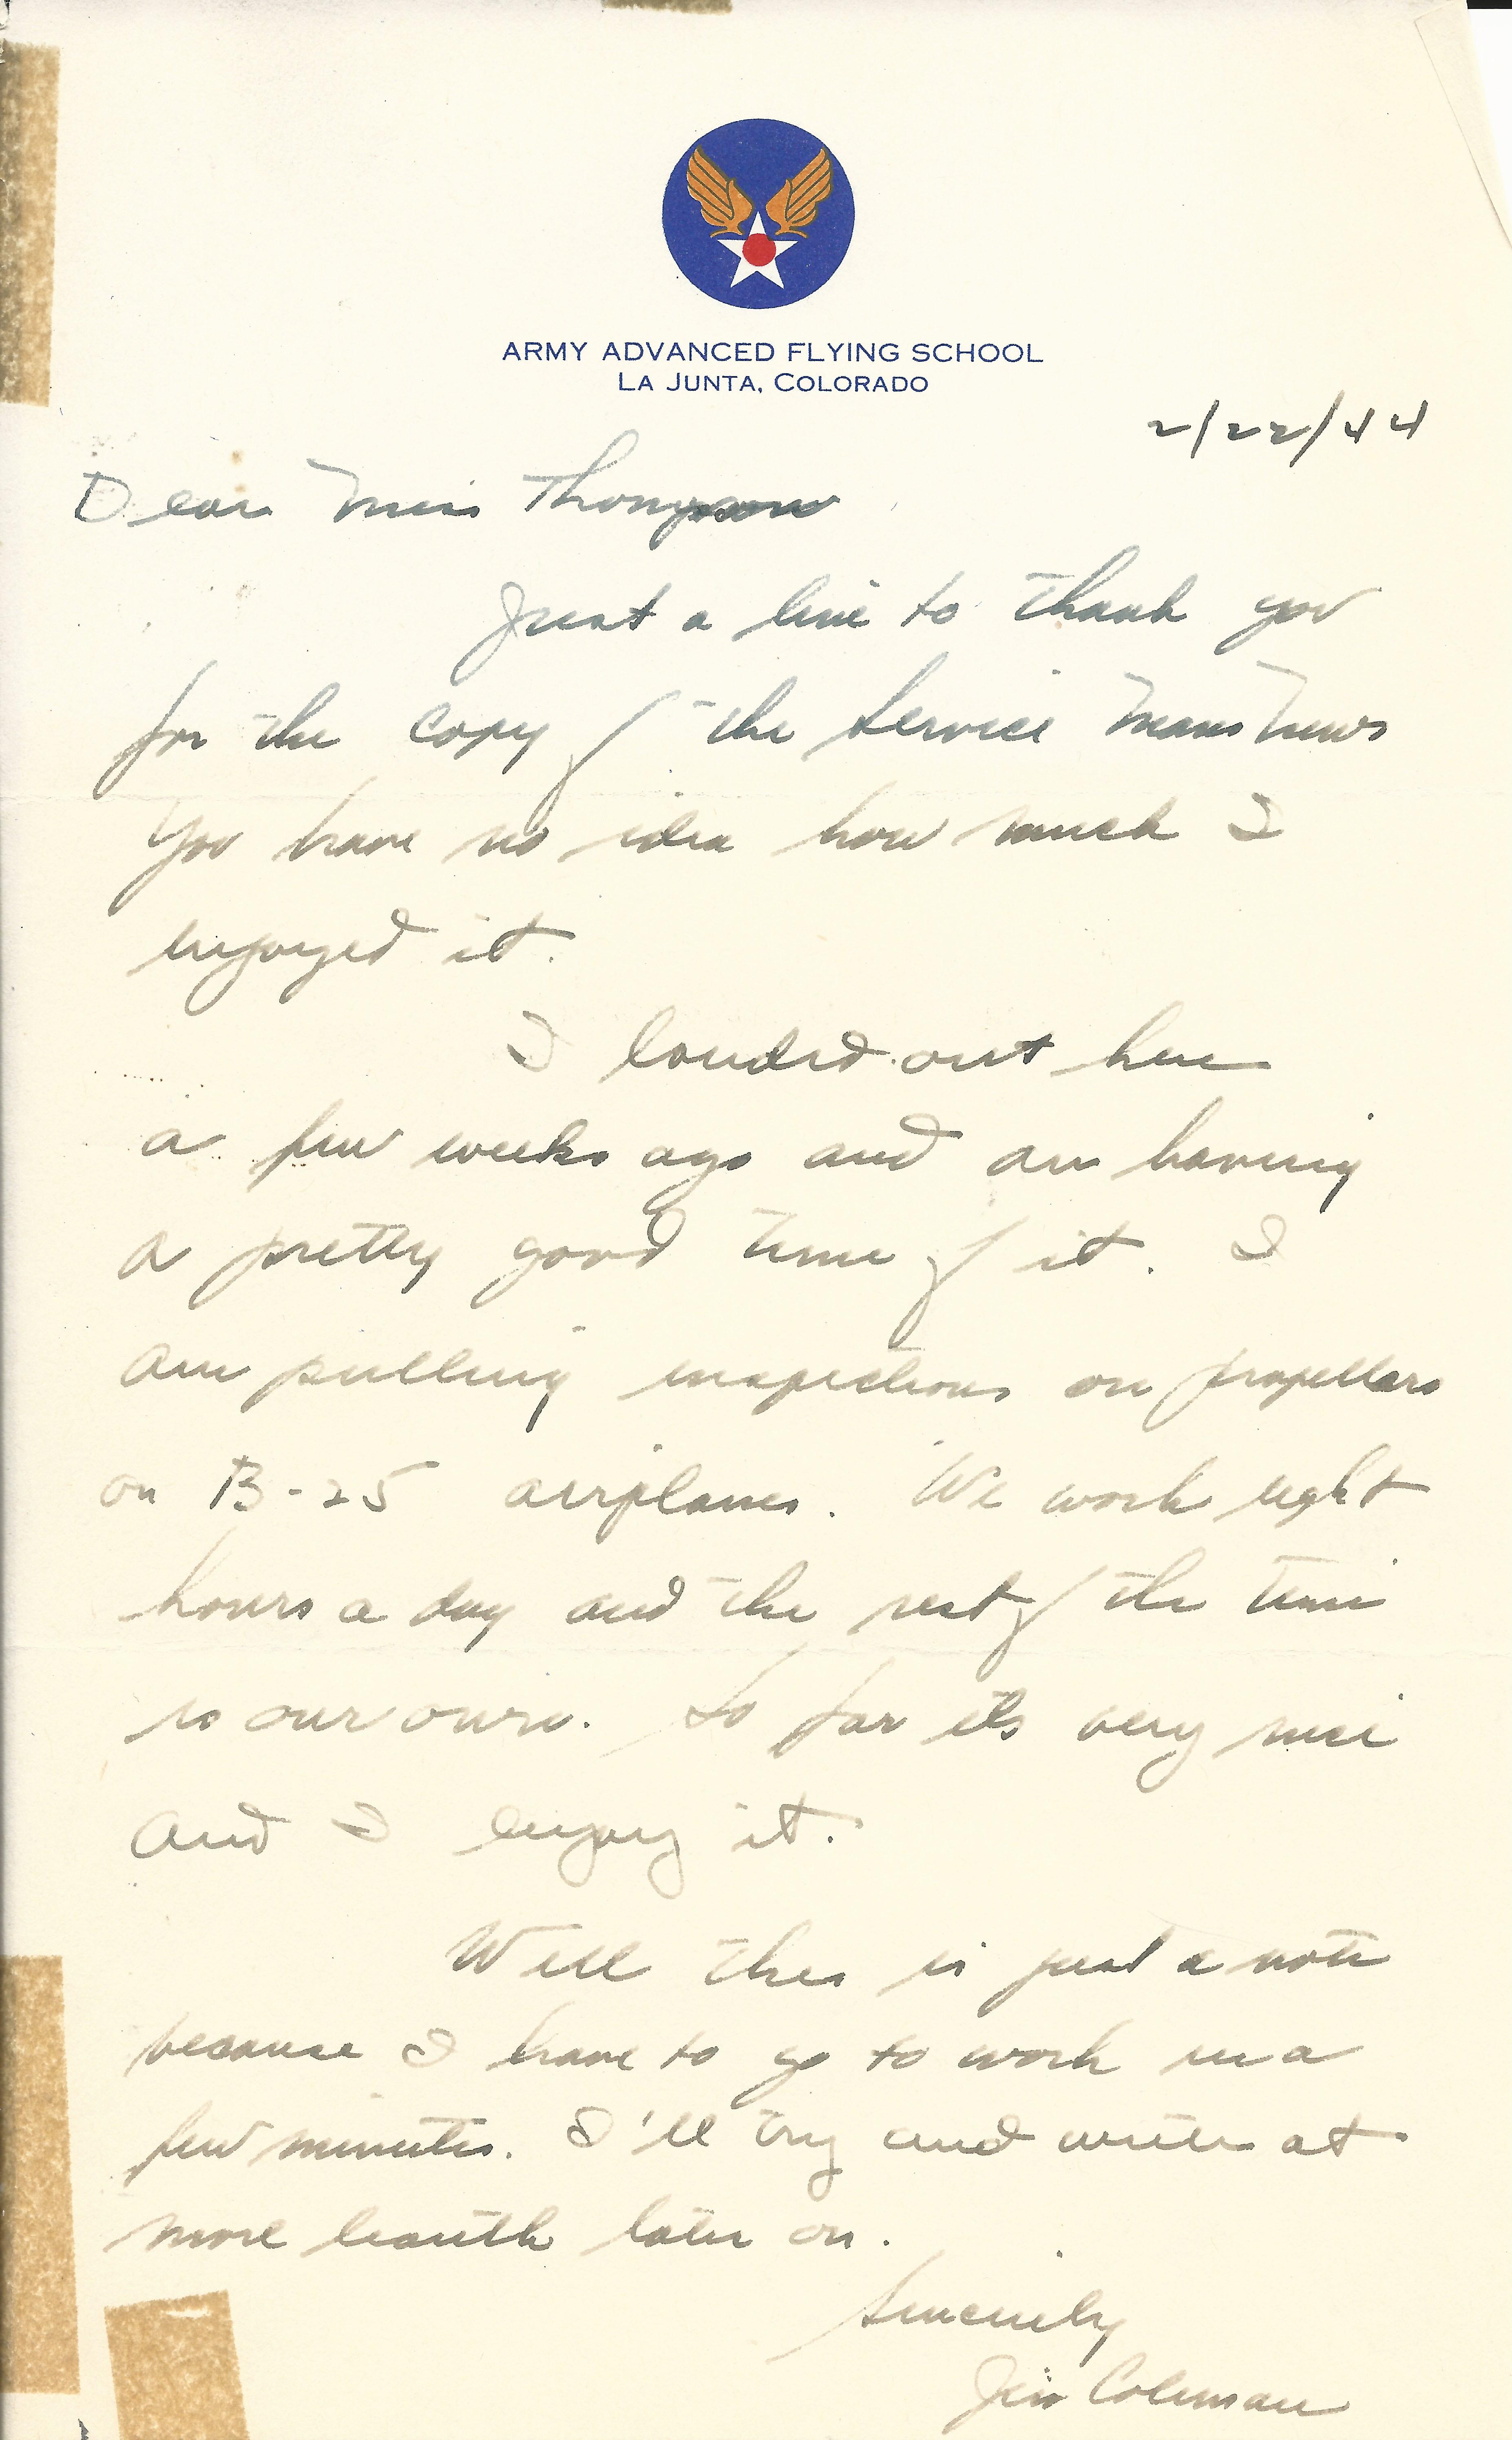 ARMY ADVANCED FLYING SCHOOL
LA JUNTA, COLORADO
2/22/44
Dear Miss Thompson
Just a line to thank you
for the copy of the Service Mans News
You have no idea how much I
enjoyed it.
I landed out here
a few weeks ago and am having
a pretty good time of it. I
am pulling inspections on propellars
on B-25 airplanes. We work eight
hours a day and the rest of the time
is our own. So far its very nice
and I enjoy it.
Well this is just a note
because I have to go to work in a
few minutes. I'll try and write at
more later on.
Sincerely
Jim Coleman